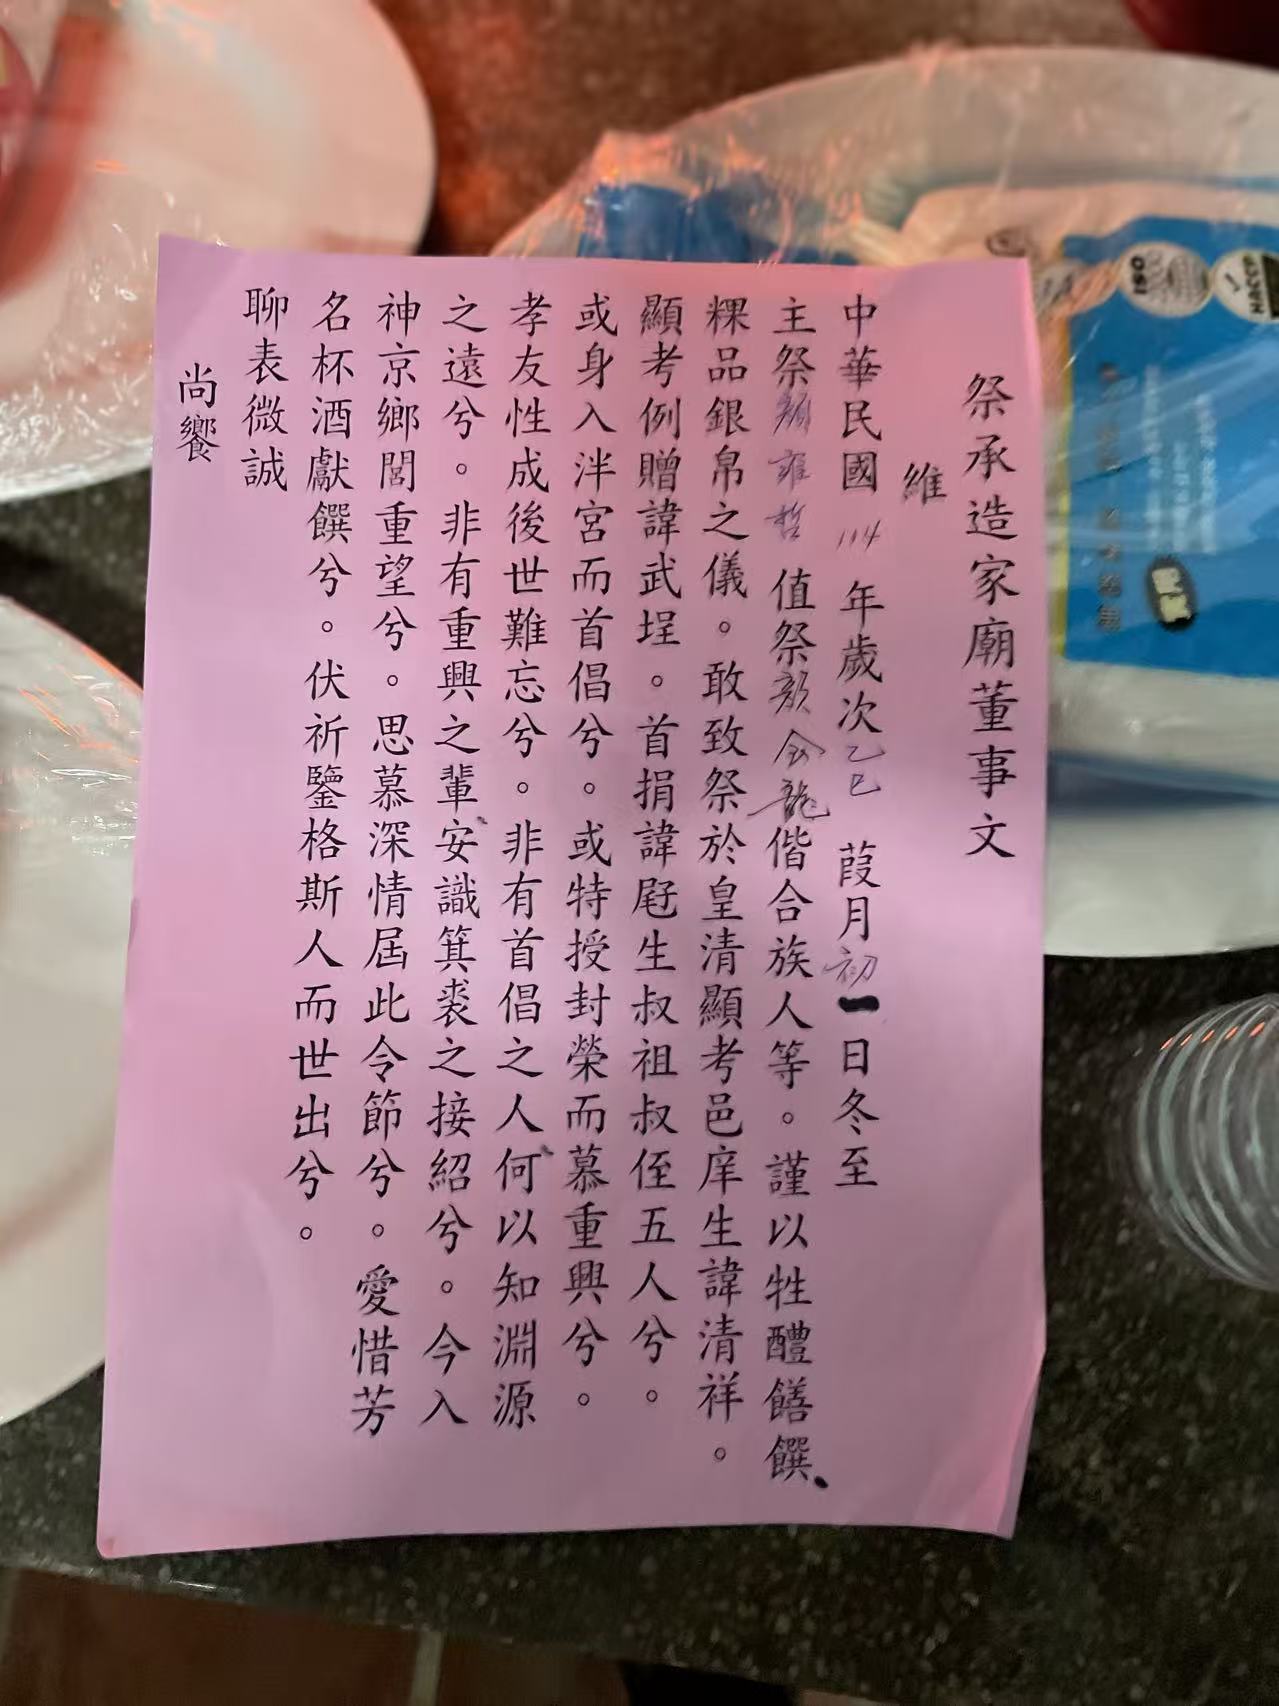 祭承造家廟董事文
維
中華民國 114 年歲次乙巳 葭月初一日冬至
主祭顏雍哲 值祭顏金龍偕合族人等。謹以牲醴饍饌、
粿品銀帛之儀。敢致祭於皇清顯考邑庠生諱清祥。
顯考例贈諱武埕。首捐諱屘生叔祖叔侄五人兮。
或身入泮宮而首倡兮。或特授封榮而慕重興兮。
孝友性成後世難忘兮。非有首倡之人何以知淵源
之遠兮。非有重興之輩、安識箕裘之接紹兮。今入
神京鄉閭重望兮。思慕深情屆此令節兮。愛惜芳
名杯酒獻饌兮。伏祈鑒格斯人而世出兮。
聊表微誠
尚饗
ISO